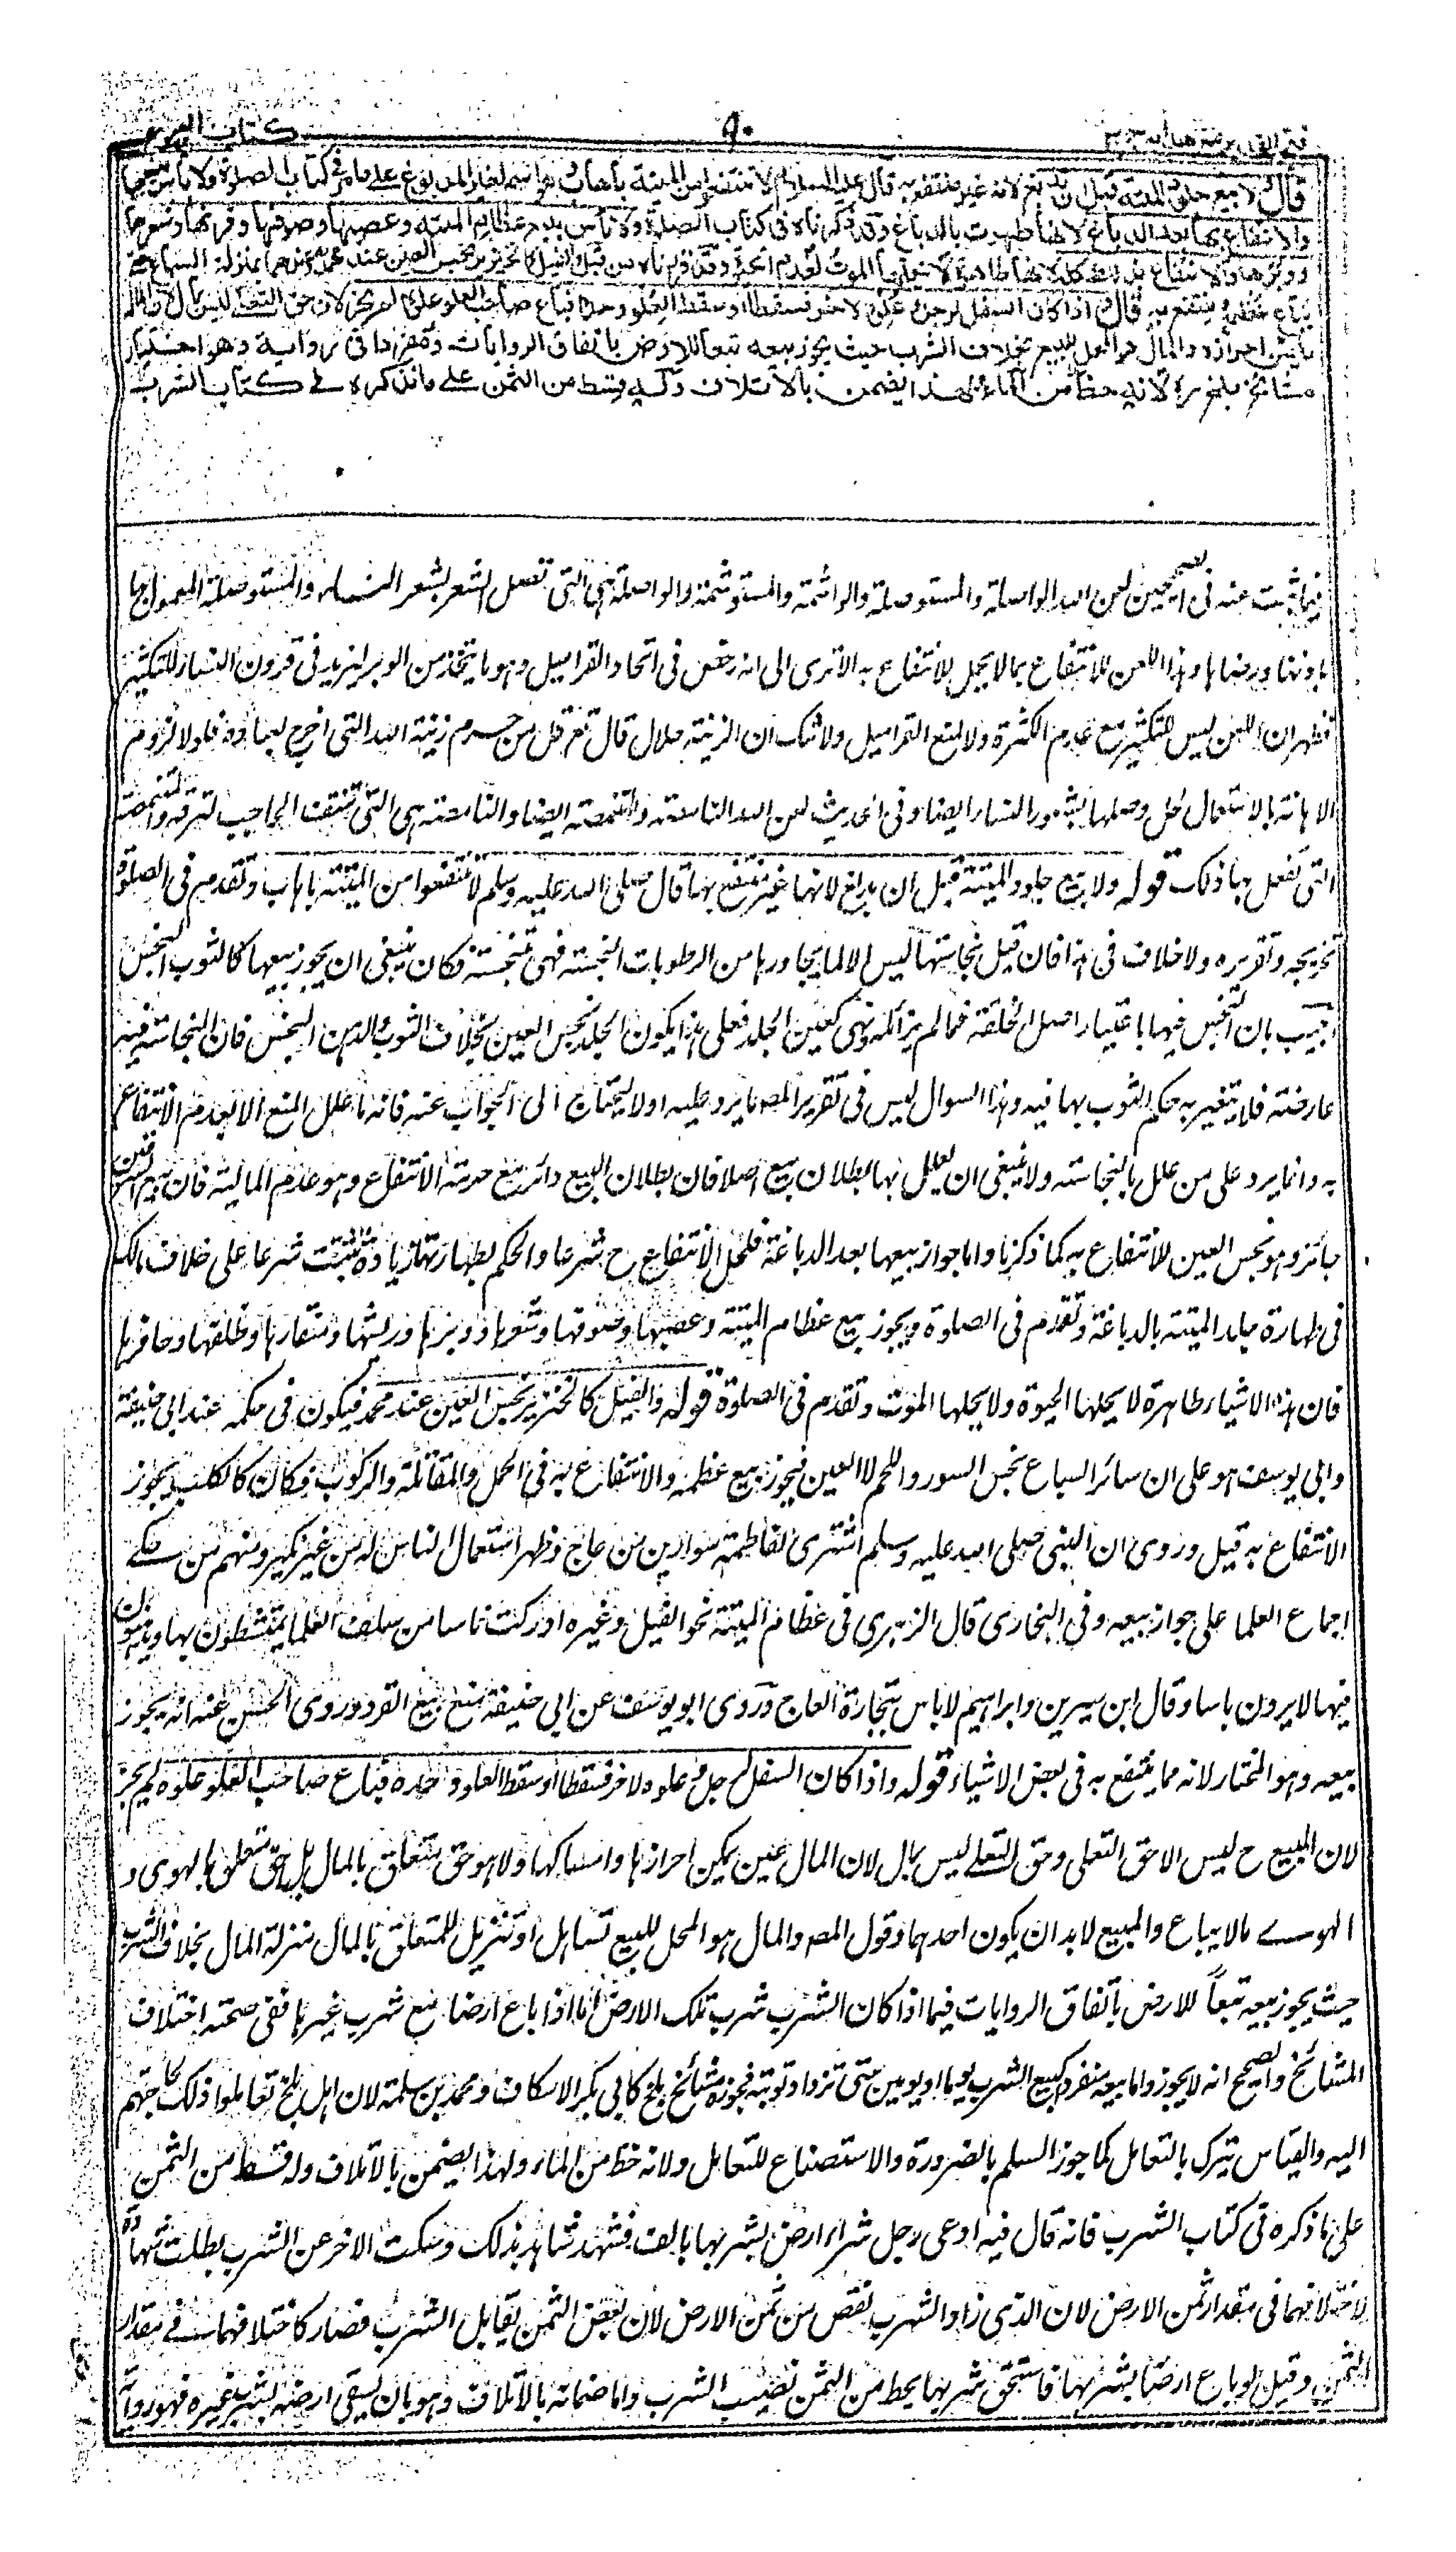 فتح القدیر مع هدایه ج ٣
٩٠
کتاب البیوع
قال ولا بیع جلود المیتة قبل ان تدبغ لانه غیر منتفع به قال علیه السلام لا تنتفعوا من المیتة باهاب وهو اسم لغیر المدبوغ علی ما مر فی کتاب الصلوة ولا باس ببیعها
والانتفاع بها بعد الدباغ لانها طهرت بالدباغ وقد ذکرناه فی کتاب الصلوة ولا باس ببیع عظام المیتة وعصبها وصوفها وقرنها وشعرها
ووبرها والانتفاع بذلک کله لانها طاهرة لا یحلها الموت لعدم الحیوة وقد قررناه من قبل والفیل کالخنزیر نجس العین عند محمد وعندهما بمنزلة السباع حتی
یباع عظمه وینتفع به قال واذا کان السفل لرجل وعلوه لاخر فسقطا او سقط العلو وحده فباع صاحب العلو علوه لم یجز لان حق التعلی لیس بمال لان المال
ما یمکن احرازه والمال هو المحل للبیع بخلاف الشرب حیث یجوز بیعه تبعا للارض باتفاق الروایات ومفردا فی روایة وهو اختیار
مشائخ بلخ رح لانه حظ من الماء ولهذا یضمن بالاتلاف وله قسط من الثمن علی ما نذکره فی کتاب الشرب
فیما ثبت عنه فی الصحیحین لعن الله الواصلة والمستوصلة والواشمة والمستوشمة والواصلة هی التی تصل الشعر بشعر النساء والمستوصلة المعمول بها
باذنها ورضاها وهذا اللعن للانتفاع بما لا یحل الانتفاع به الا تری الی انه رخص فی اتخاذ القرامیل وهو ما یتخذ من الوبر لیزید فی قرون النساء للتکثیر
فظهر ان اللعن لیس للتکثیر مع عدم الکثرة والا لمنع القرامیل ولا شک ان الزینة حلال قال تع قل من حرم زینة الله التی اخرج لعباده فلولا لزوم
الاهانة بالاستعمال لحل وصلها بشعور النساء ایضا وفی الحدیث لعن الله النامصة والمتنمصة ایضا والنامصة هی التی تنتقف الحاجب لترقه والمتنمصة
التی تفعل بها ذلک قوله ولا بیع جلود المیتة قبل ان تدبغ لانها غیر منتفع بها قال صلی الله علیه وسلم لا تنتفعوا من المیتة باهاب وتقدم فی الصلوة
تخریجه وتقریره ولا خلاف فی هذا فان قیل نجاستها لیس الا لما یجاورها من الرطوبات النجسة فهی متنجسة فکان ینبغی ان یجوز بیعها کالثوب النجس
اجیب بان التنجس فیها باعتبار اصل الخلقة فما لم یزائله فهی کعین الجلد فعلی هذا یکون الجلد نجس العین بخلاف الثوب والدهن النجس فان النجاسة فیه
عارضة فلا یتغیر به حکم الثوب بها فیه وهذا السوال لیس فی تقریر المصه ما یرد علیه اولا لیحتاج الی الجواب عنه فانه ما علل المنع الا بعدم الانتفاع
به وانما یرد علی من علل بالنجاسة ولا ینبغی ان یعلل بها بطلان بیع اصلا فان بطلان البیع دائر مع حرمة الانتفاع وهو عدم المالیة فان بیع السرقین
جائز وهو نجس العین للانتفاع به کما ذکرنا واما جواز بیعها بعد الدباغة فلحل الانتفاع ح شرعا والحکم بطهارتها زیادة ثبتت شرعا علی خلاف مالک
فی طهارة جلد المیتة بالدباغة وتقدم فی الصلوة ویجوز بیع عظام المیتة وعصبها وصوفها وشعرها ووبرها وریشها ومنقارها وظلفها وحافرها
فان هذه الاشیاء طاهرة لا یحلها الحیوة ولا یحلها الموت وتقدم فی الصلوة قوله والفیل کالخنزیر نجس العین عند محمد فیکون فی حکمه عند ابی حنیفة
وابی یوسف هو علی ان سائر السباع نجس السور واللحم لا العین فیجوز بیع عظمه والانتفاع به فی الحمل والمقاتلة والرکوب فکان کالکلب یجوز
الانتفاع به قیل وروی ان النبی صلی الله علیه وسلم اشتری لفاطمة سوارین من عاج وظهر استعمال الناس له من غیر نکیر ومنهم من حکے
اجماع العلما علی جواز بیعه وفی البخاری قال الزهری فی عظام المیتة نحو الفیل وغیره ادرکت ناسا من سلف العلما یمتشطون بها ویدهنون
فیها لا یرون باسا وقال ابن سیرین وابراهیم لا باس بتجارة العاج وروی ابو یوسف عن ابی حنیفة منع بیع القرد وروی الحسن عنه انه یجوز
بیعه وهو المختار لانه مما ینتفع به فی بعض الاشیاء قوله واذا کان السفل لرجل وعلوه لاخر فسقطا او سقط العلو وحده فباع صاحب العلو علوه لم یجز
لان المبیع ح لیس الا حق التعلی وحق التعلے لیس بمال لان المال عین یمکن احرازها وامساکها ولا هو حق متعلق بالمال بل حق متعلق بالهوی و
الهوے مالا یباع والمبیع لا بد ان یکون احدهما وقول المصه والمال هو المحل للبیع تساهل او تنزیل للمتعلق بالمال منزلة المال بخلاف الشرب
حیث یجوز بیعه تبعاً للارض باتفاق الروایات فیما اذا کان الشرب شرب تلک الارض اما اذا باع ارضا مع شرب غیرها ففی صحته اختلاف
المشائخ والصحیح انه لا یجوز واما بیعه منفردا کبیع الشرب یوما او یومین حتی تزداد نوبته فجوزه مشائخ بلخ کابی بکر الاسکاف ومحمد بن سلمة لان اهل بلخ تعاملوا ذلک لحاجتهم
الیه والقیاس یترک بالتعامل کما جوز السلم بالضرورة والاستصناع للتعامل ولانه حظ من الماء ولهذا یضمن بالاتلاف وله قسط من الثمن
علی ما ذکره فی کتاب الشرب فانه قال فیه ادعی رجل شراء ارض بشربها بالف فشهد شاهد بذلک وسکت الاخر عن الشرب بطلت شهادة
لاختلافهما فی مقدار ثمن الارض لان الذی زاد الشرب نقص من ثمن الارض لان بعض الثمن یقابل الشرب فصار کاختلافهما فے مقدار
الثمن وقیل لو باع ارضا بشربها فاستحق شربها یحط من الثمن نصیب الشرب واما ضمانه بالاتلاف وهو بان یسقی ارضه بشرب غیره فهو روایة